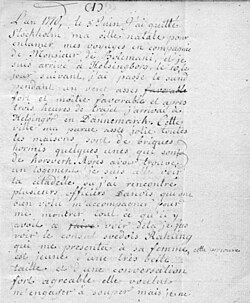 (1)
L'an 1770, le 5 Juin j'ai quitté
Stockholm ma ville natale pour
entamer mes voyages en compagnie
de Monsieur de Bolemani et je
suis arrivé à Helsingborg le 10. le
jour suivant j'ai passé le Sund
pendant un vent assés favorable
fort et moitié favorable et après
trois heures de trajet j'arrivai à
Helsingör en Dannemark. Cette
ville m'a parue assés jolie toutes
les maisons sont de briques
hormis quelques unes qui sont
de korsverk. Après avoir trouvé
un logement je suis allé voir
la citadelle où j'ai rencontré
plusieurs officiers Danois qui ont
bien voulu m'accompagner pour
me montrer tout ce qu'il y
avoit à faire voir delà je fus
voir le consul suédois
qui me présenta à sa femme, elle
est jeune d'une très belle
taille et d'une conversation
fort agréable elle voulut
m'engager à souper mais je me